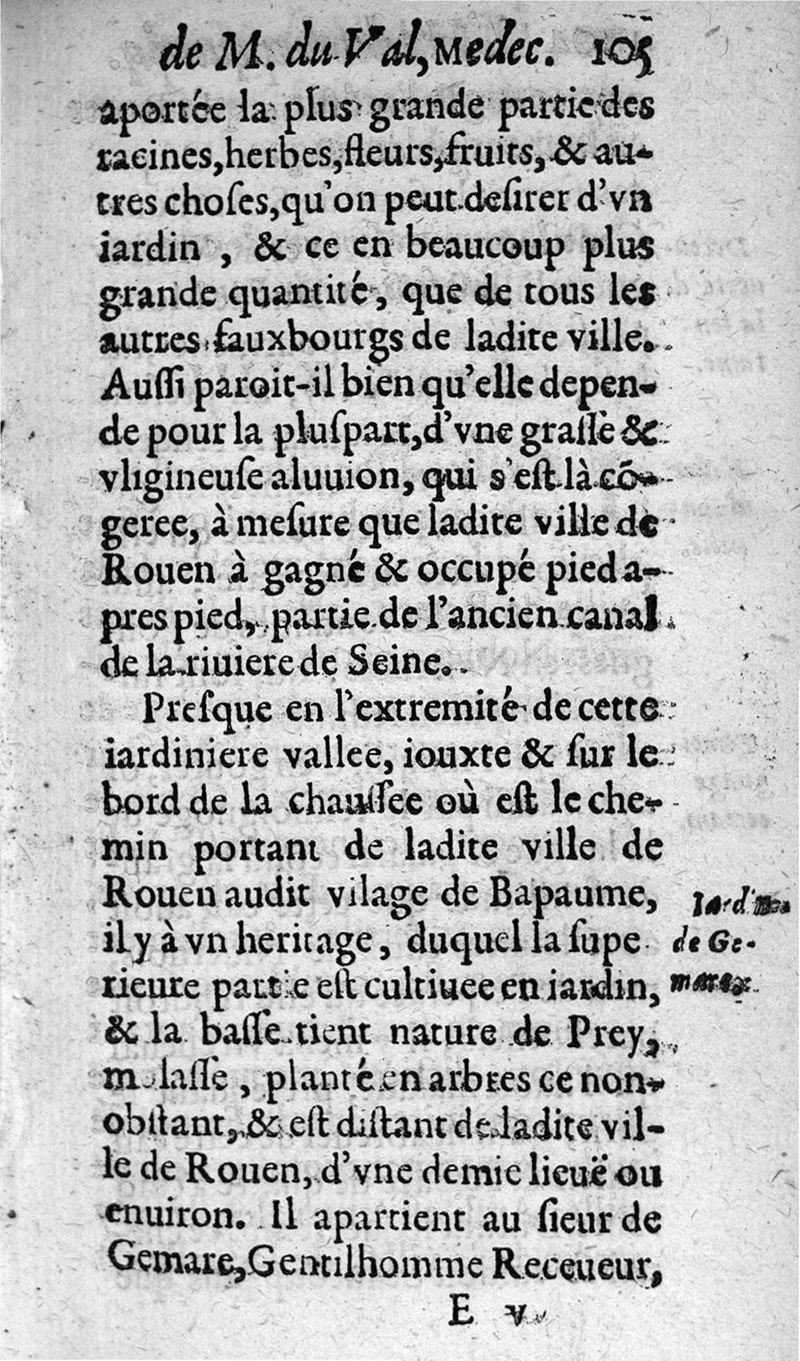 de M. du Val, Medec. 105
aportée la plus grande partie des
racines, herbes, fleurs, fruits, & au-
tres choſes, qu'on peut deſirer d'vn
iardin , & ce en beaucoup plus
grande quantité, que de tous les
autres fauxbourgs de ladite ville.
Auſſi paroit-il bien qu'elle depen-
de pour la pluſpart, d'vne graſſe &
vligineuſe aluuion, qui s'eſt là cõ-
geree, à meſure que ladite ville de
Rouen à gagné & occupé pied a-
pres pied, partie de l'ancien canal
de la riuiere de Seine.
Preſque en l'extremité de cette
iardiniere vallee, iouxte & ſur le
bord de la chauſſee où eſt le che-
min portant de ladite ville de
Rouen audit vilage de Bapaume,
il y à vn heritage, duquel la ſupe
rieure partie eſt cultiuee en iardin,
& la baſſe tient nature de Prey,
planté en arbres ce non-
obſtant, & eſt diſtant de ladite vil-
le de Rouen, d'vne demie lieuë ou
enuiron. Il apartient au ſieur de
Gemare, Gentilhomme Receueur,
E v
de Ge-